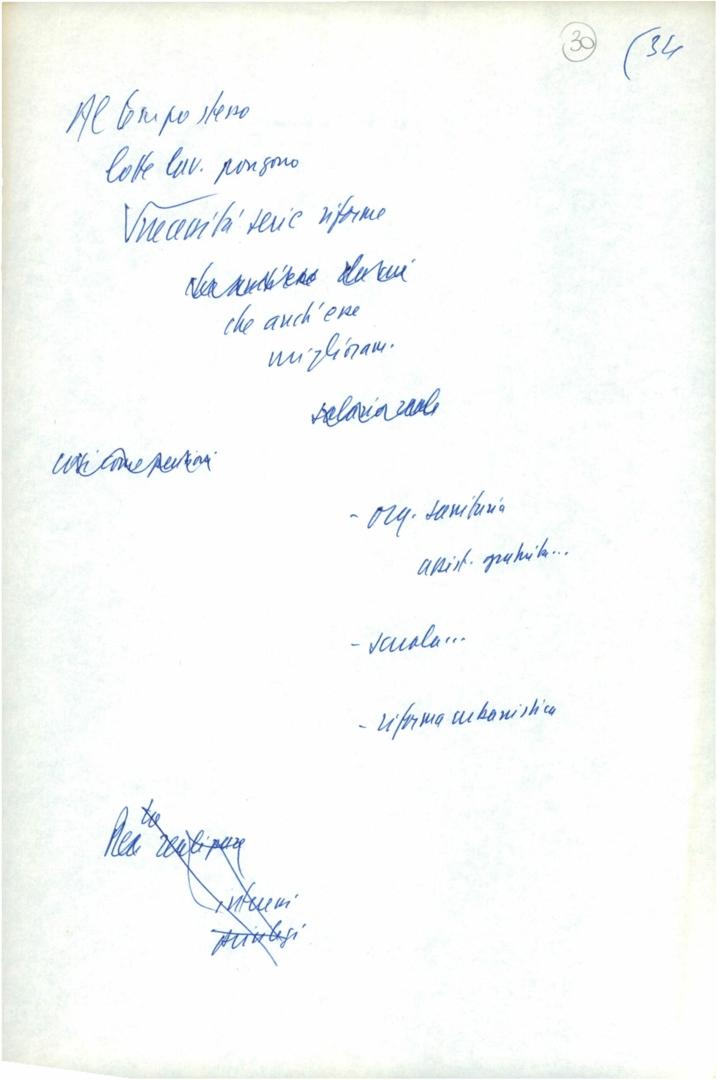 30 (34
Al tempo stesso
lotte lav. pongono
necessità serie riforme
che anch'esse
miglioram.
salario reale
così come pensioni
- org. sanitaria
assist. gratuita...
- scuola...
- riforma urbanistica
realizzare
interessi
privilegi